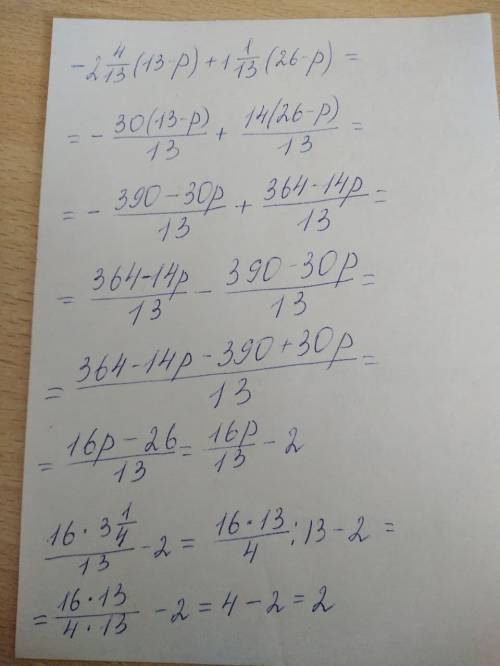 -2 4/13 (13-p) + 1 1/13 (26-p) =
= - 30(13-p)/13 + 14(26-p)/13 =
= - 390-30p/13 + 364-14p/13 =
= 364-14p/13 - 390-30p/13 =
= 364-14p-390+30p/13 =
= 16p-26/13 = 16p/13 - 2
16·3 1/4/13 - 2 = 16·13/4 : 13 - 2 =
= 16·13/4·13 - 2 = 4 - 2 = 2